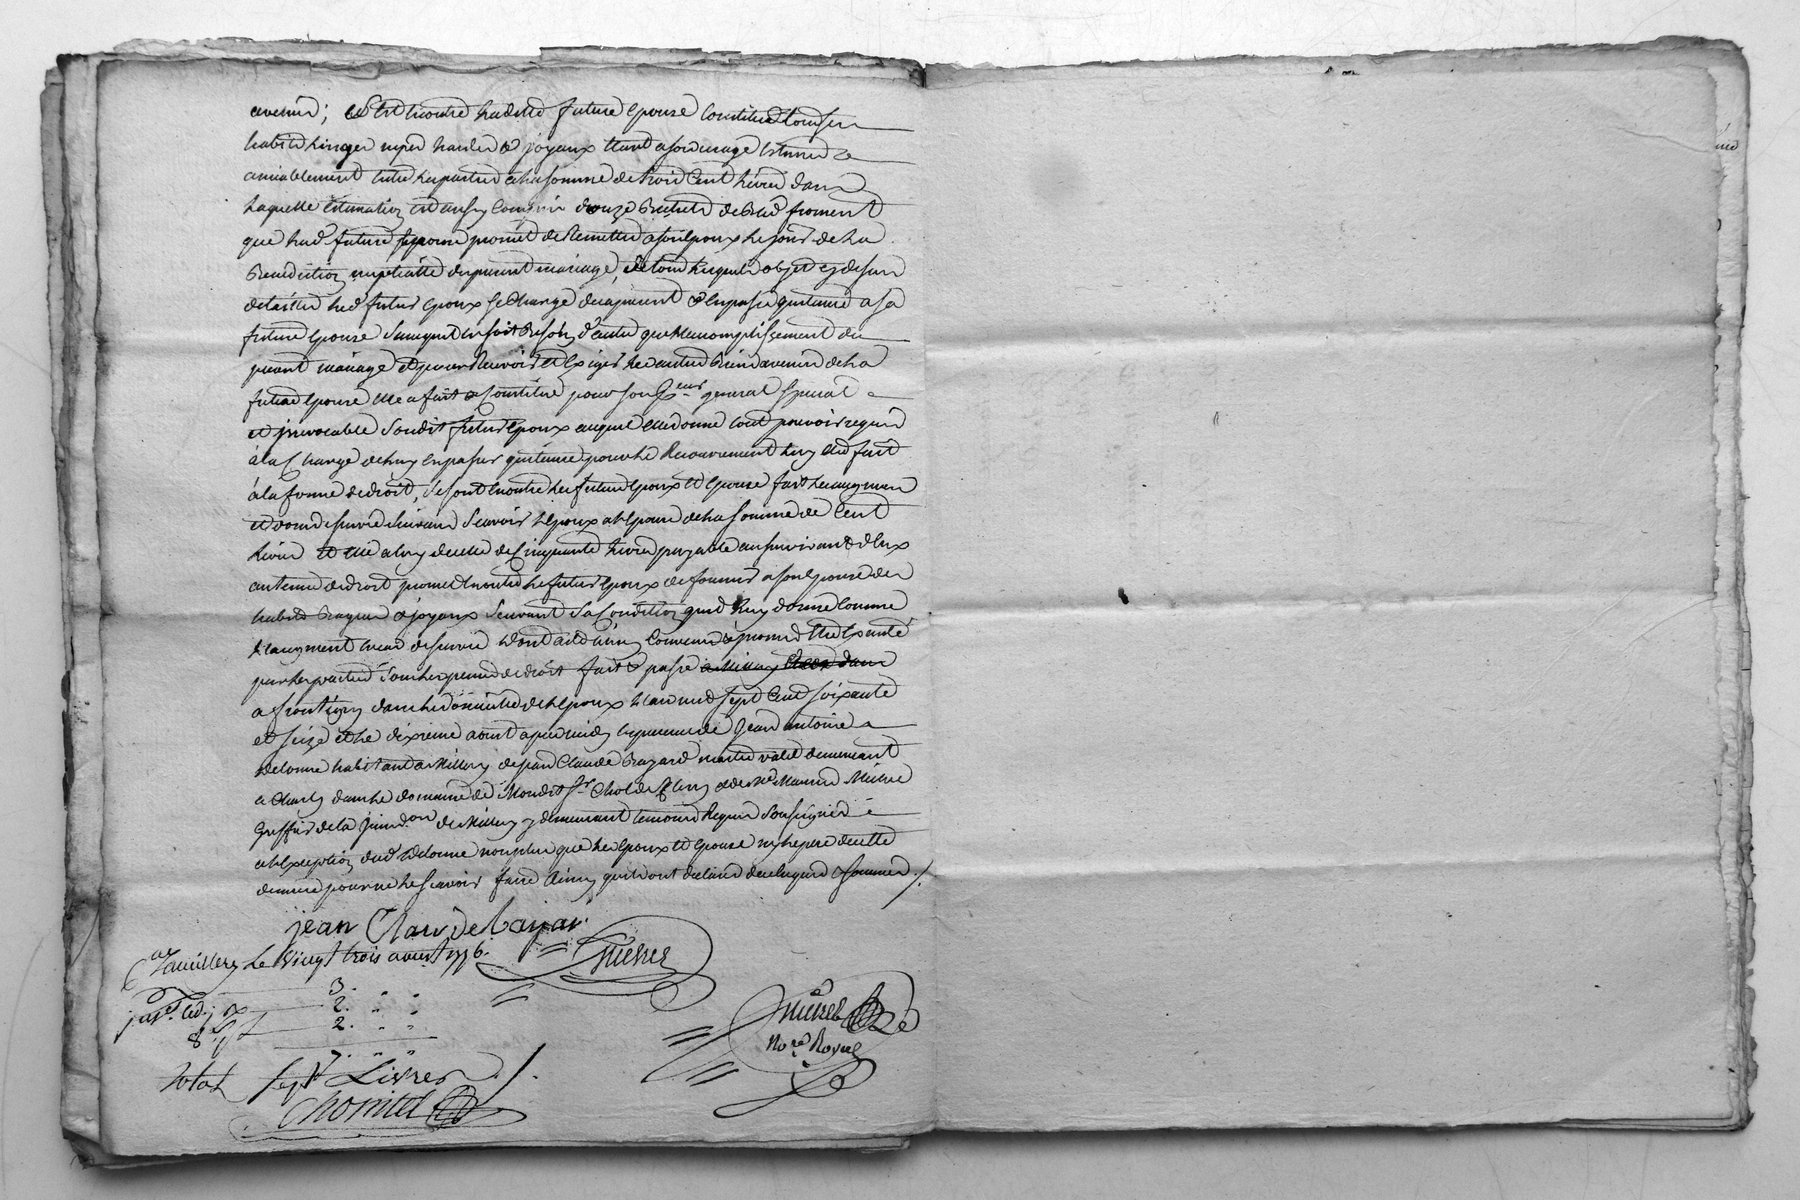 avenir; Et en outre laditte future Epouse Constitue tous ses
habits Linges nipes hardes & joyaux étant a son usage Estimés
amiablement entre les parties a la somme de trois Cent Livres dans
Laquelle Estimation est aussy Compris douze Bichets de Bled froment
que lad. future Epouse promet de Remettre a son Epoux le jour de la
Benediction nuptialle du present mariage, de tous lesquels objets cy dessus
detaillés led. futur Epoux se Charge des a present & en passe quittance a sa
future Epouse sans qu'il en soit Besoin d'autre que l'accomplissement du
present mariage et pour Recevoir et Exiger les autres Biens avenir de la
future Epouse Elle a fait & Constitué pour son P.eur general special
et irrevocable sondit futur Epoux auquel Elle donne tout pouvoir requis
à la Charge de luy en passer quittance pour le Recouvrement luy Etre fait
à la forme de droit, se sont en outre les futurs Epoux et Epouse fait les augment
et dons de survie suivans scavoir L'Epoux a l'Epouse de la somme de Cent
Livres et Elle a luy de celle de Cinquante Livres payable au survivant d'Eux
au terme de droit promet en outre le futur Epoux de fournir a son Epouse des
habits Bagues & joyaux suivant sa Condition qu'il luy donne Comme
L'augment en cas de survie dont a été ainsy Convenu & promis Etre Executé
par les parties sous les peines de droit fait & passé
a frontigny dans le domicile de l'Epoux L'an mil sept Cent soixante
et seize et le dixieme aoust apres midy en presence de Jean antoine
Delorme habitant a Millery de jean Claude Bayard maitre valet demeurant
a Charly dans le domaine de Mondit S.r Cholet & de M.e Maurice Mielé
Greffier de la jurid.on de Millery y demeurant temoins Requis soussignés
a l'Exception dud. Delorme non plus que les Epoux et Epouse ny le pere de cette
derniere pour ne le scavoir faire ainsy qu'ils ont declaré de ce Enquis & sommés ./.
jean Claude bayar
Le vingt trois aoust 1776.
3. " "
2. " "
8.s
2. " "
7. " "
total sept Livres ./.
No.re Royal